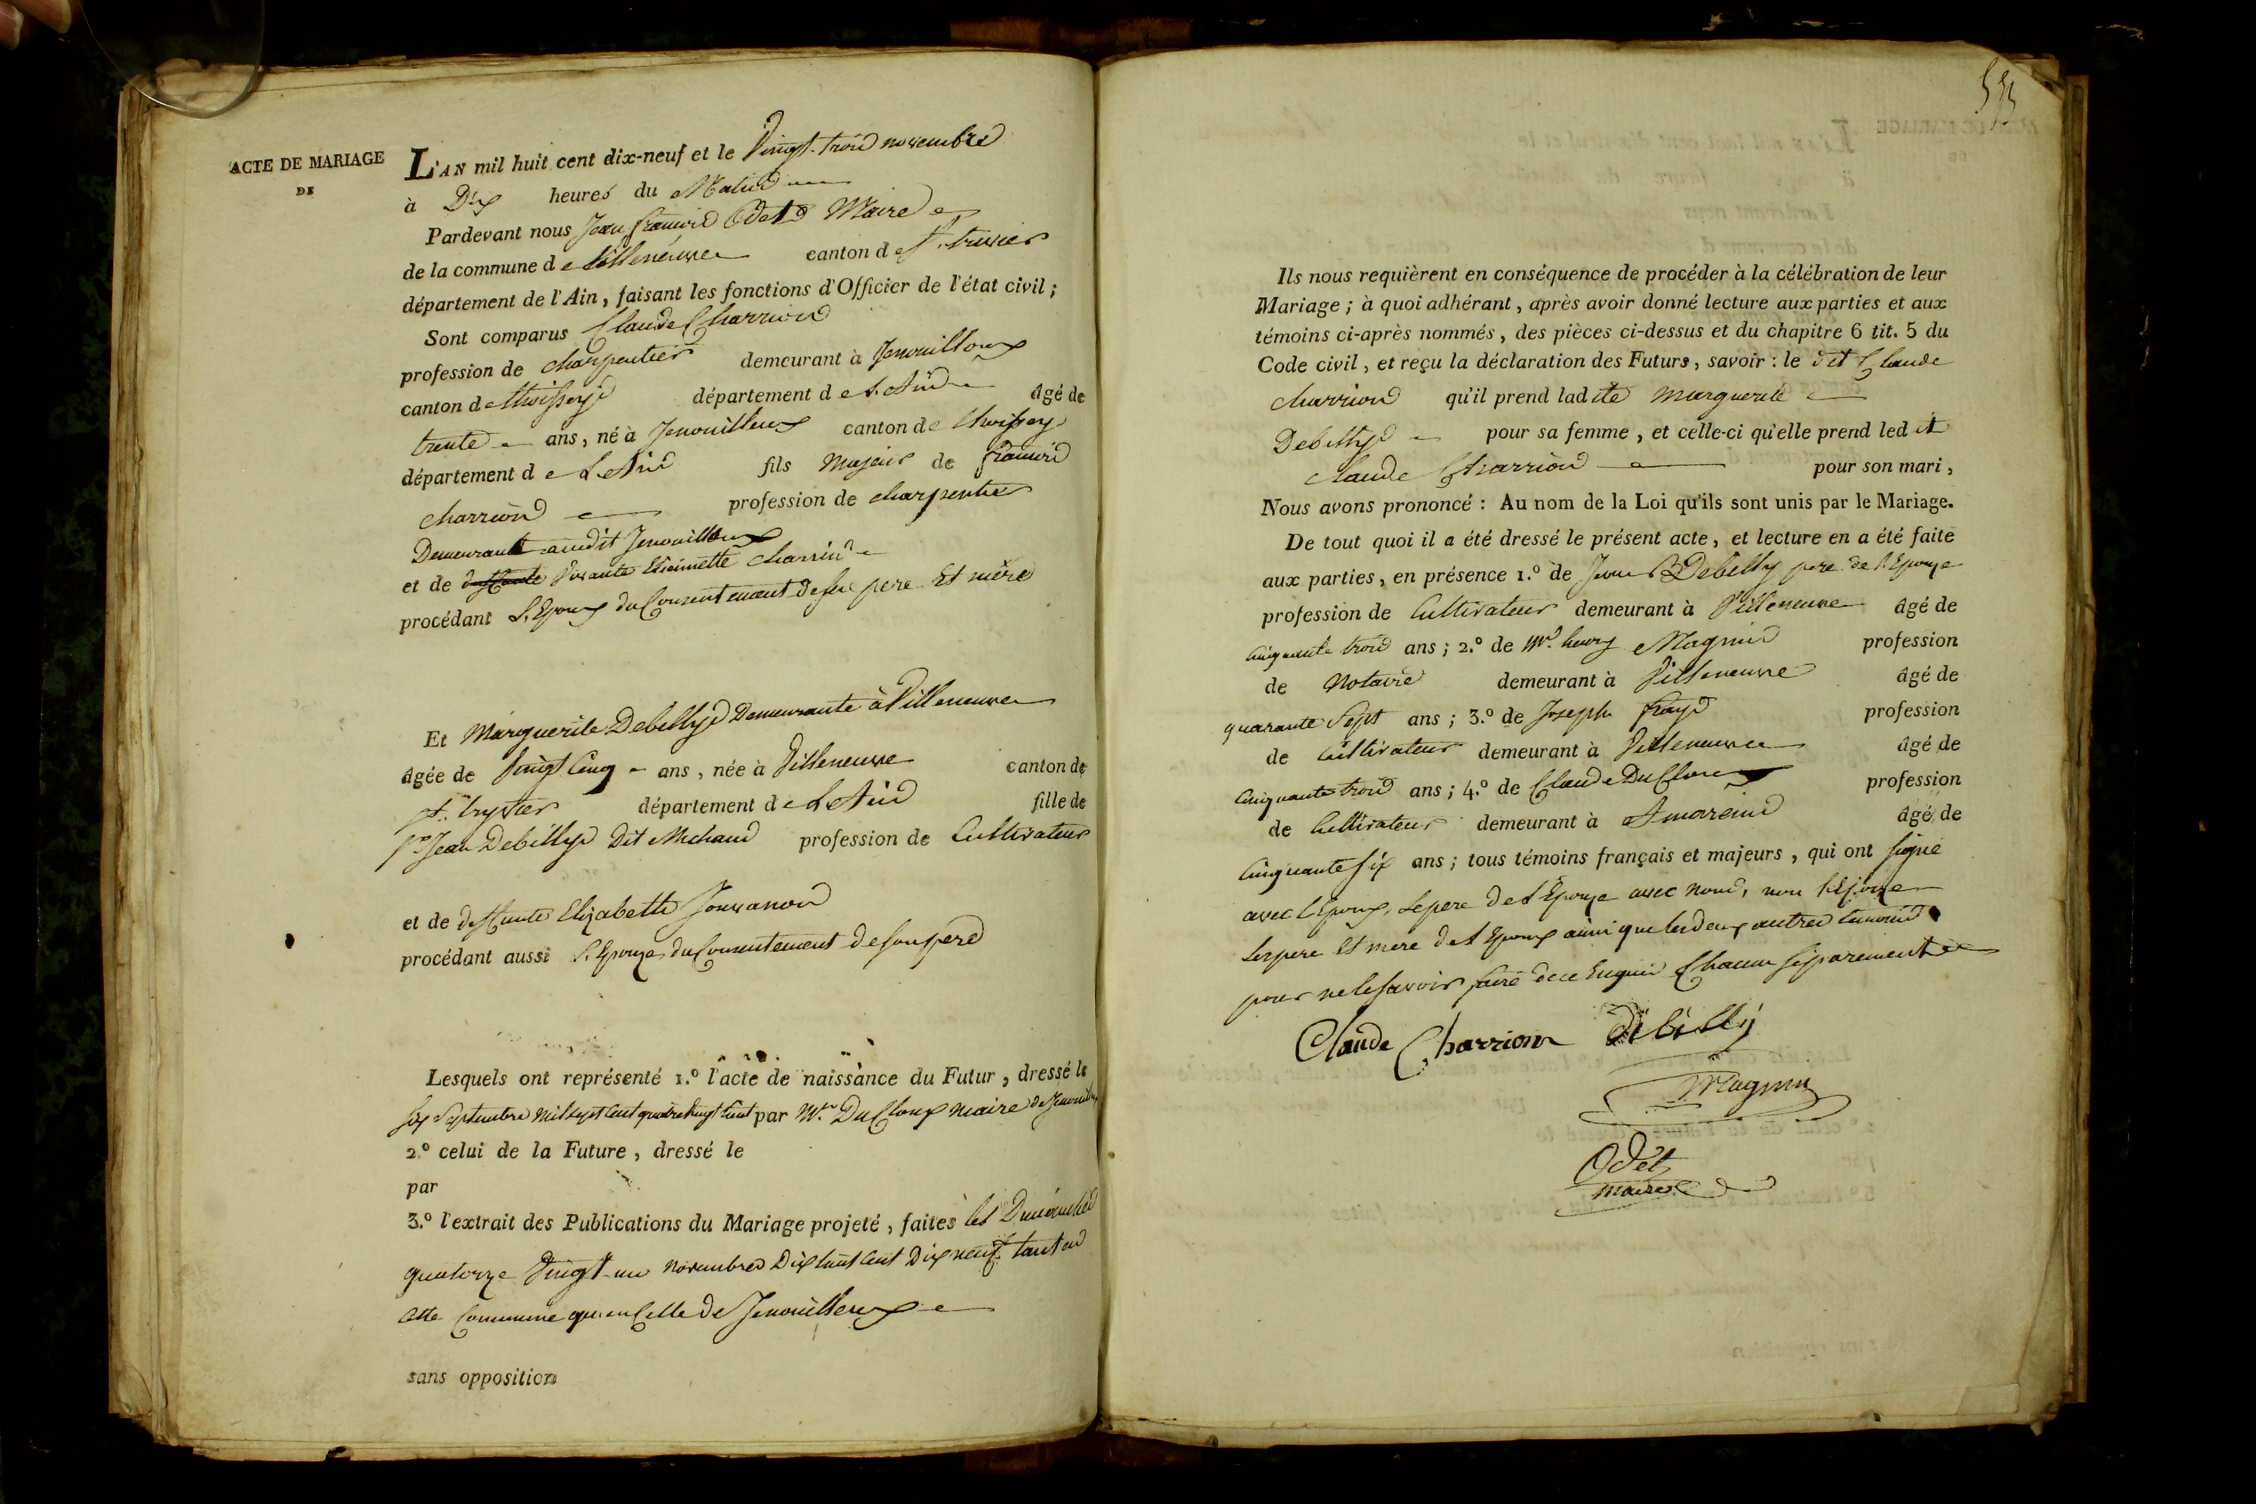 ACTE DE MARIAGE
DE
L'AN mil huit cent dix-neuf et le Vingt-trois novembre
à Dix heures du Matin
Pardevant nous Jean françois Odet Maire
de la commune de Villeneuve canton de St. trivier
département de l'Ain, faisant les fonctions d'Officier de l'état civil;
Sont comparus Claude Charrion
profession de charpentier demeurant à Jenouilleux
canton de thoissey département de L'Ain âgé de
trente ans, né à Jenouilleux canton de thoissey
département de L'Ain fils majeur de françois
charrion profession de charpentier
Demeurant audit Jenouilleux
et de deffunte vivante Etiennette charrin
procédant L'Epoux du Consentement de ses pere Et mère
Et Marguerite Debilly Demeurante à Villeneuve
âgée de vingt Cinq ans, née à Villeneuve canton de
St. tryvier département de L'Ain fille de
Jean Debilly Dit Michaud profession de Cultivateur
et de deffunte Elizabeth Jouvanon
procédant aussi L'Epouze du Consentement de son pere
Lesquels ont représenté 1.º l'acte de naissance du Futur, dressé le
six Septembre mil sept cent quatre vingt huit par Mr. DuCloux maire de Jenouilleux
2.º celui de la Future, dressé le
par
3.º l'extrait des Publications du Mariage projeté, faites les Dimanches
quatorze Vingt-un novembre Dix huit Cent Dix neuf tant en
cette Commune qu'en Celle de Jenouilleux
sans opposition
Ils nous requièrent en conséquence de procéder à la célébration de leur
Mariage; à quoi adhérant, après avoir donné lecture aux parties et aux
témoins ci-après nommés, des pièces ci-dessus et du chapitre 6 tit. 5 du
Code civil, et reçu la déclaration des Futurs, savoir: le dit Claude
charrion qu'il prend ladite marguerite
Debilly pour sa femme, et celle-ci qu'elle prend ledit
claude Charrion pour son mari,
Nous avons prononcé: Au nom de la Loi qu'ils sont unis par le Mariage.
De tout quoi il a été dressé le présent acte, et lecture en a été faite
aux parties, en présence 1.º de Jean Debilly pere de l'Epouze
profession de Cultivateur demeurant à Villeneuve âgé de
cinquante trois ans; 2.º de Mr. henry Magnin profession
de Notaire demeurant à Villeneuve âgé de
quarante Sept ans; 3.º de Joseph profession
de Cultivateur demeurant à Villeneuve âgé de
cinquante trois ans; 4.º de Claude DuCloux profession
de Cultivateur demeurant à Amareins âgé de
cinquante six ans; tous témoins français et majeurs, qui ont signé
avec L'Epoux, Le pere de L'Epouze avec nous, non L'Epouze
Les pere Et mere de L'Epoux ainsi que les deux autres temoins
pour ne le savoir faire de ce Enquis Chacun séparement
Claude Charrion Debilly
Magnin
Odet
maire